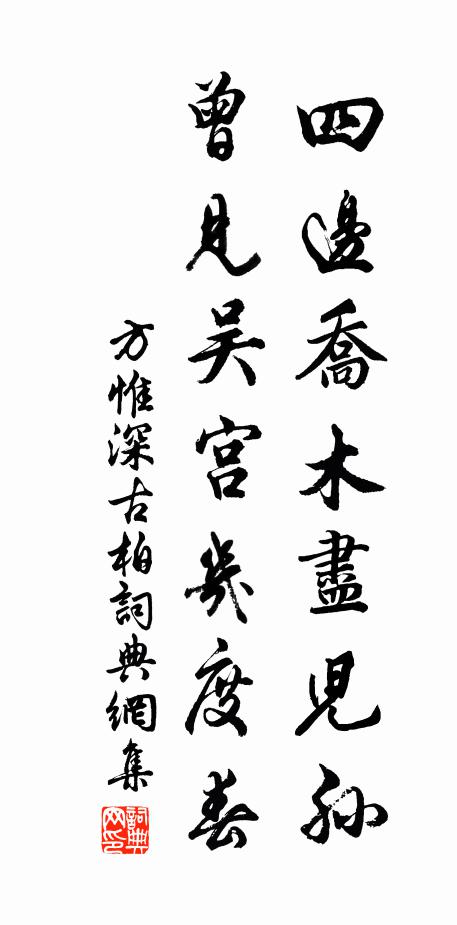 四邊喬木盡児孫
曾見吴宫幾度春
方惟深古柏詞典網集
詞典网印